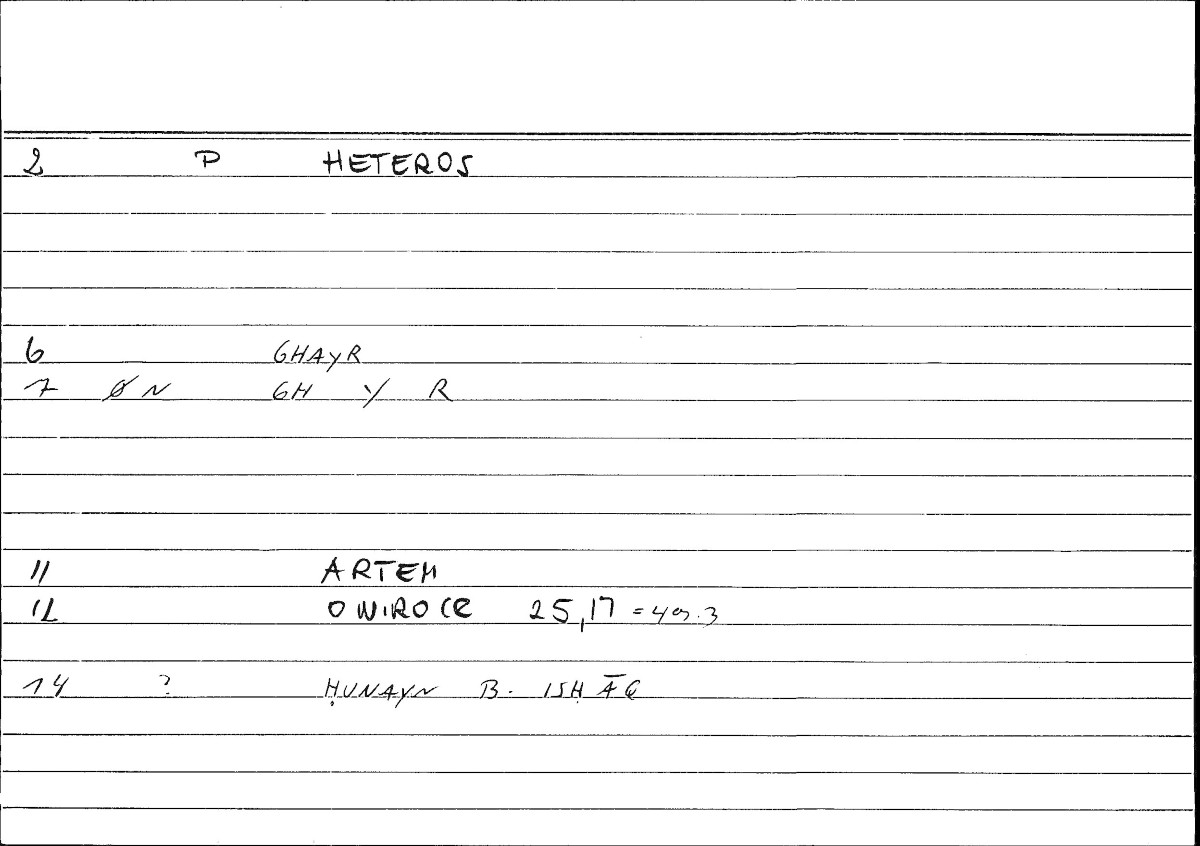 2 P HETEROS
6 GHAYR
7 Ø N GH Y R
11 ARTEM
12 ONIROCR 25,17 = 49.3
14 ? ḤUNAYN B. ISḤĀQ